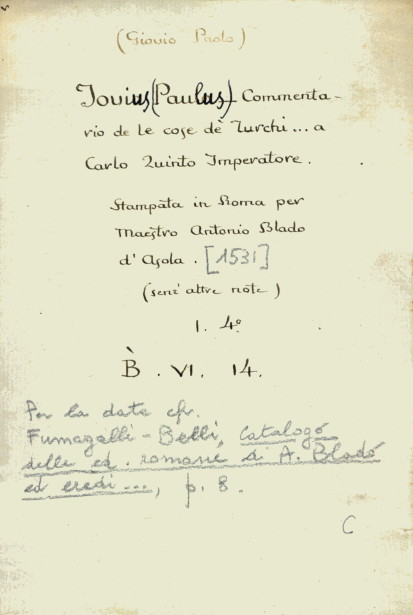 (Giovio Paolo)
Jovius (Paulus) Commenta-
rio de le cose dè Turchi... a
Carlo Quinto Imperatore.
Stampata in Roma per
Maestro Antonio Blado
d'Asola. [1531]
(senz'altre note)
1. 4º
B. VI. 14.
Per la data cfr.
Fumagalli-Belli, Catalogo
delle ed. romane di A. Blado
ed eredi..., p. 8.
C